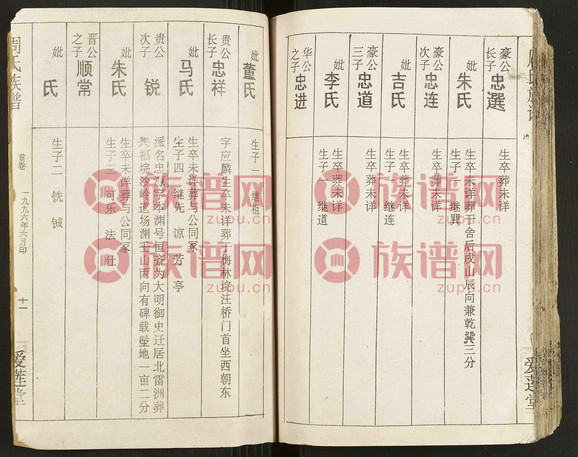 豪公
长子
忠選
生卒葬未详
妣
朱氏
生卒未详葬于舍后戌山辰向兼乾巽三分
生子一 继巽
豪公
次子
忠连
生卒葬未详
妣
吉氏
生卒葬未详
生子一 继连
豪公
三子
忠道
生卒葬未详
妣
李氏
生卒葬未详
生子一 继道
华公
之子
忠进
爱莲堂
妣
董氏
生子一 继祖
贵公
长子
忠祥
字应麟生卒未详葬于梅林挠注桥门首坐西朝东
妣
马氏
生卒未详葬与公同冢
生子四 继先 谅 芳 亭
贵公
次子
锐
派名忠 字 渊号恒斋为大明御史迁居北雷洲葬
兴福垸沙岭道场渊壬山丙向有碑载茔地一亩二分
妣
朱氏
生卒未详葬与公同冢
生子三 尚乐 法 仕
晋公
之子
顺常
妣
氏
生子二 铣 铖
周氏族谱
首卷
一九九六年六月印
十一
爱莲堂
族谱网
zupu.cn
族谱网
zupu.cn